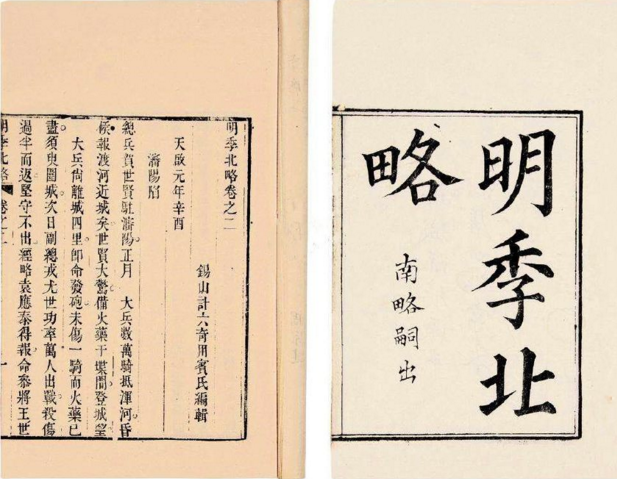 明季北
略
南略嗣出
明季北略卷之二
錫山計六奇用賓氏編輯
天啟元年辛酉
瀋陽陷
總兵賀世賢駐瀋陽正月 大兵數萬騎抵渾河昏
候報渡河近城矣世賢大驚備火藥于堞間登城望
大兵尙離城四里卽命發砲未傷一騎而火藥已
盡須臾圍城次日副總戎尤世功率萬人出戰殺傷
過半而返堅守不出經略袁應泰得報命參將王世
明季北略 卷之二 一